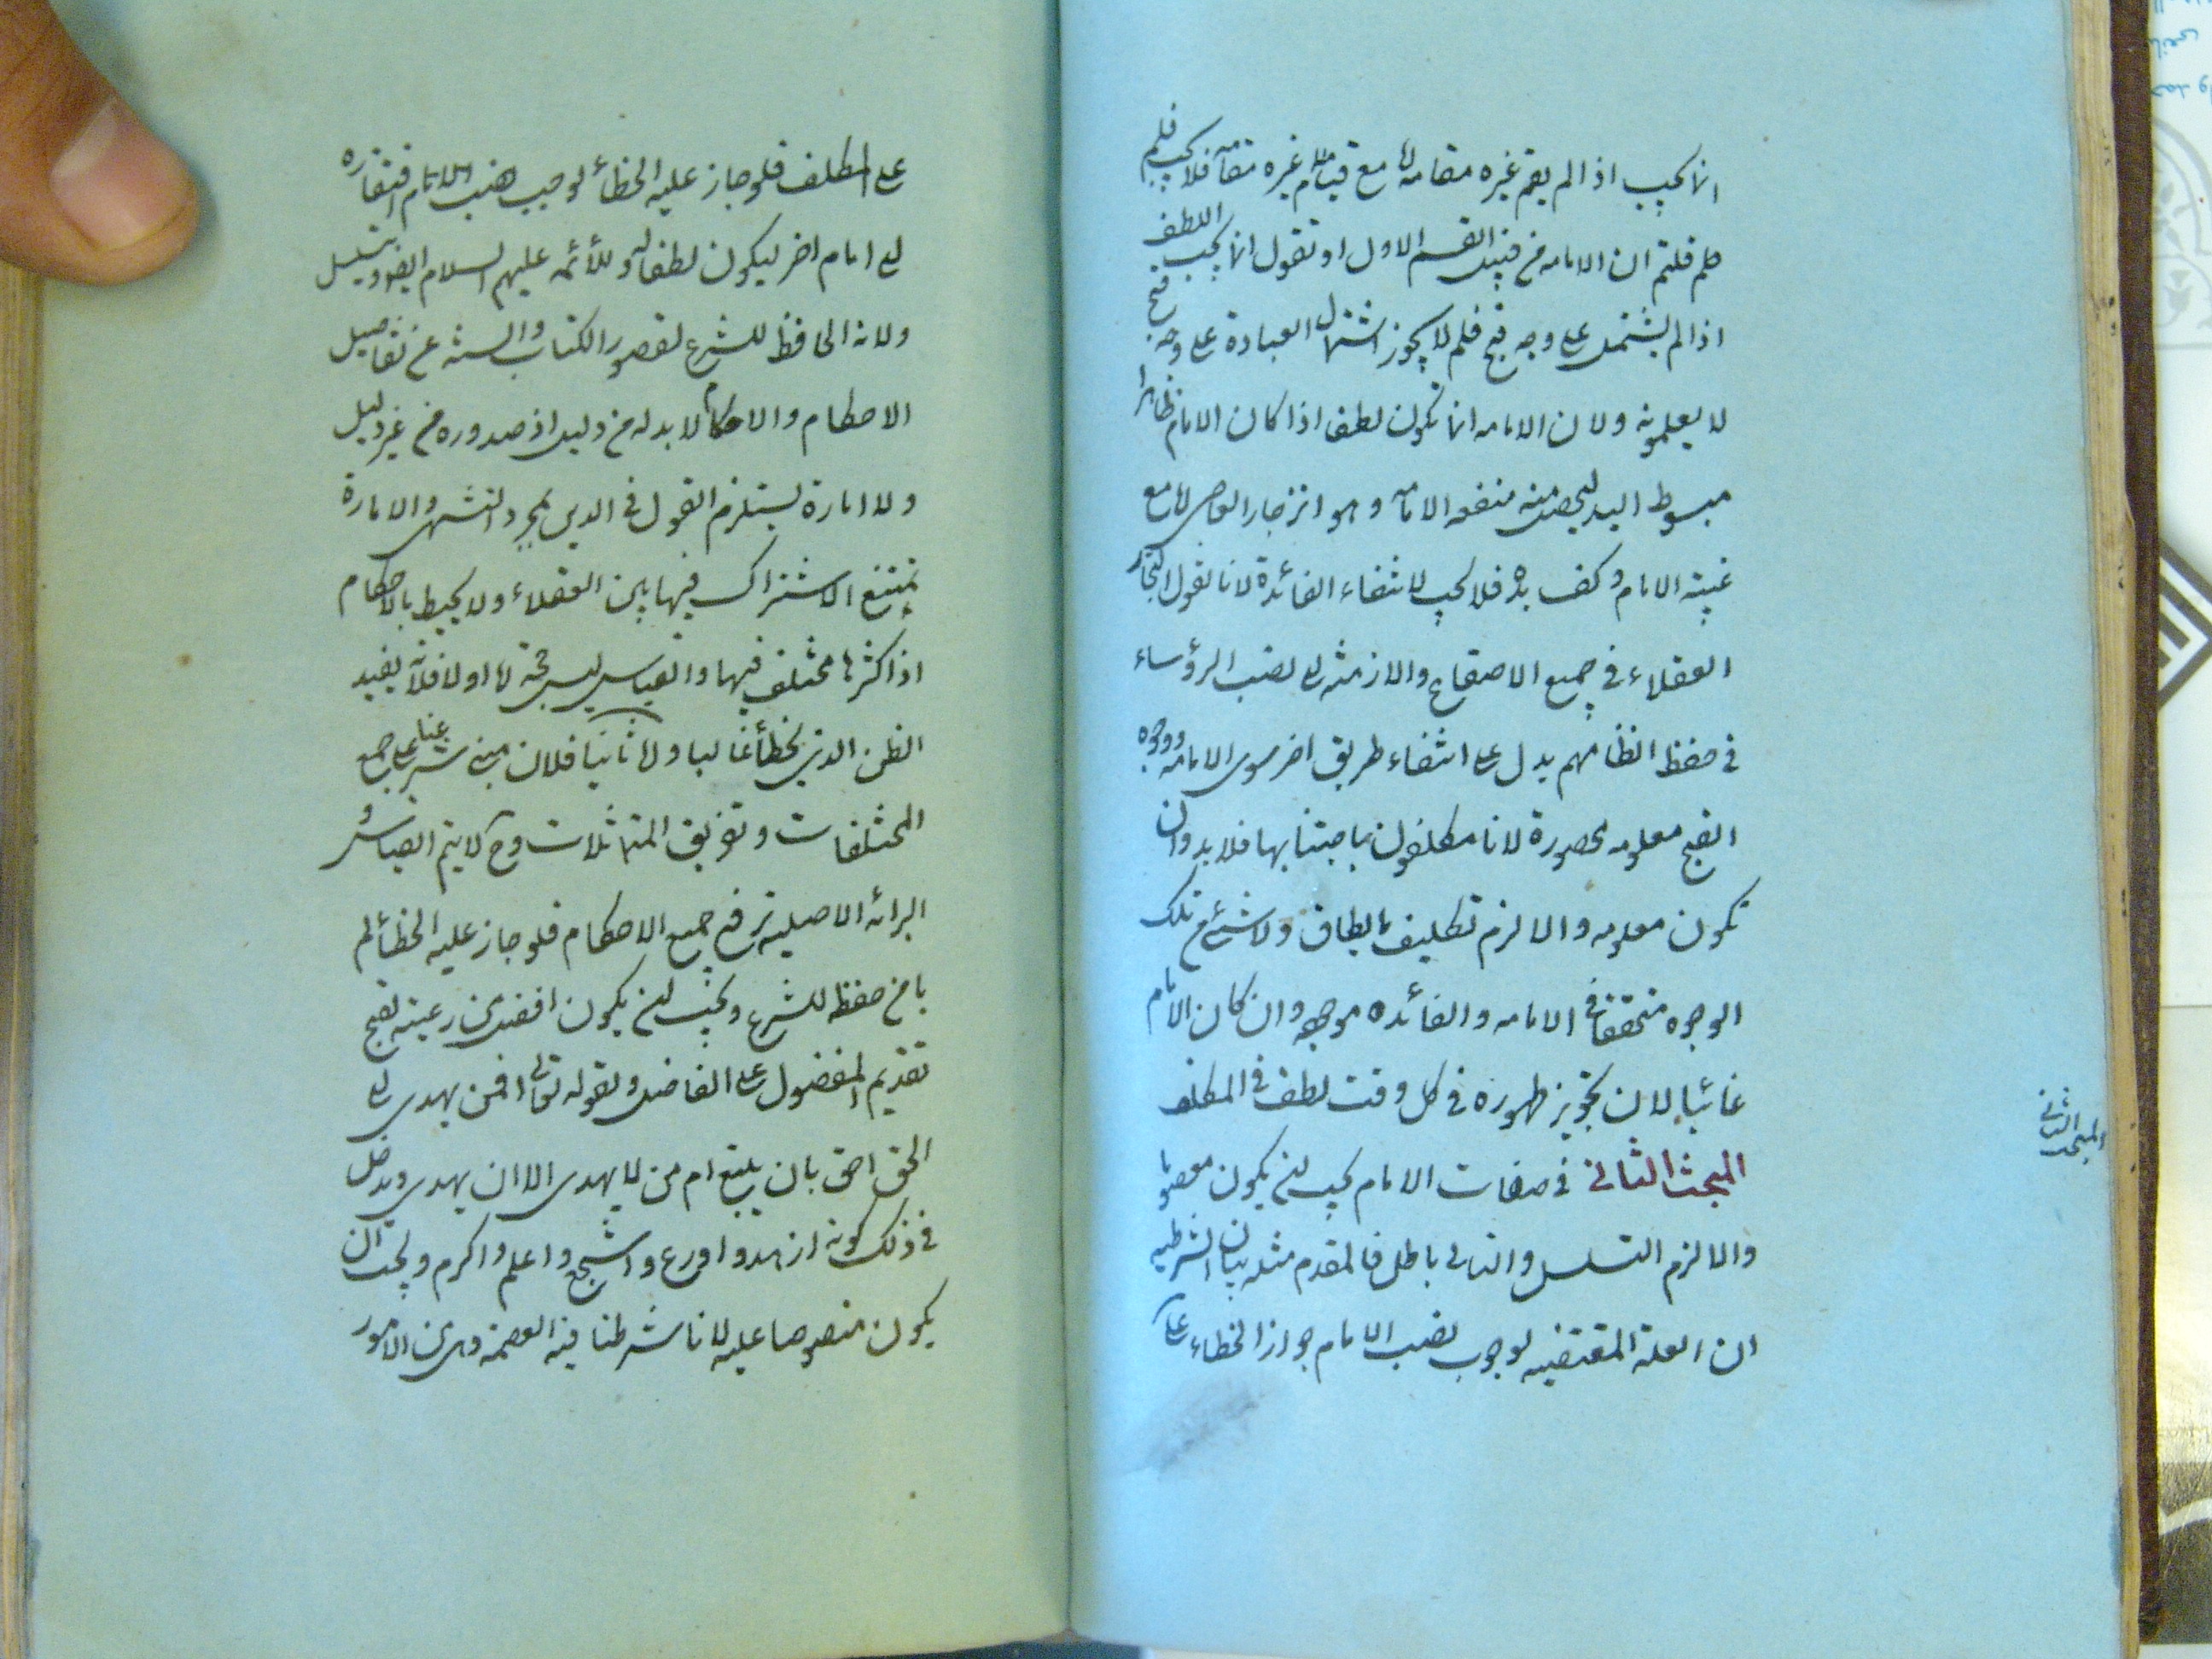 انما يجب اذا لم يقم غيره مقامه اما مع قيام غيره مقامه فلا يجب فلم
قلتم ان الامامه من قبيل القسم الاول او تقول انما يجب اللطف
اذا لم يشتمل على وجه قبح فلم لا يجوز اشتمال العبادة على وجه قبح
لا يعلمونه ولان الامامه انما تكون لطفا اذا كان الامام ظاهرا
مبسوط اليد ليحصل منه منفعه الامامه وهو انزجار العاصى اما مع
غيبته الامام وكف يده فلا يجب لانتفاء الفائدة لانا نقول التجاء
العقلاء فى جميع الاصقاع والازمنه الى نصب الرؤساء
فى حفظ انظامهم يدل على انتفاء طريق اخر سوى الامامه ووجوه
القبح معلومه محصورة لانا مكلفون باجتنابها فلا بد وان
تكون معلومه والا لزم تكليف مالايطاق ولا شئ من تلك
الوجوه متحققا فى الامامه والفائده موجوده وان كان الامام
غائبا لان تجويز ظهوره فى كل وقت لطف فى المكلف
المبحث الثانى فى صفات الامام يجب ان يكون معصوما
والا لزم التسلسل والتالى باطل فالمقدم مثله بيان الشرطيه
ان العلة المقتضيه لوجوب نصب الامام جواز الخطاء على
المبحث الثانى
على المكلف فلو جاز عليه الخطأ لوجب افتقاره
الى امام اخر ليكون لطفا له وللأئمه عليهم السلام ايضا ويتسلسل
ولانه الحافظ للشرع لقصور الكتاب والسنه عن تفاصيل
الاحكام والاحكام لابد له من دليل اذ صدوره من غير دليل
ولا امارة يستلزم القول فى الدين بمجرد التشهى والامارة
يمتنع الاشتراك فيها بين العقلاء ولا يحيط بالاحكام
اذ اكثرها مختلف فيها والقياس ليس بحجة اما اولا فلانه يفيد
الظن الذى يخطأ غالبا واما ثانيا فلان مبنى شرعنا على جمع
المختلفات وتفريق المتماثلات وح لا يتم القياس و
البرائه الاصليه ترفع جميع الاحكام فلو جاز عليه الخطأ لم
يامن حفظه للشرع ويجب ان يكون افضل من رعيته لقبح
تقديم المفضول على الفاضل ولقوله تعالى افمن يهدى الى
الحق احق بان يتبع ام من لا يهدى الا ان يهدى ويدخل
فى ذلك كونه ازهد واورع واشجع واعلم واكرم ويجب ان
يكون منصوصا عليه لانا شرطنا فيه العصمة وهى من الامور